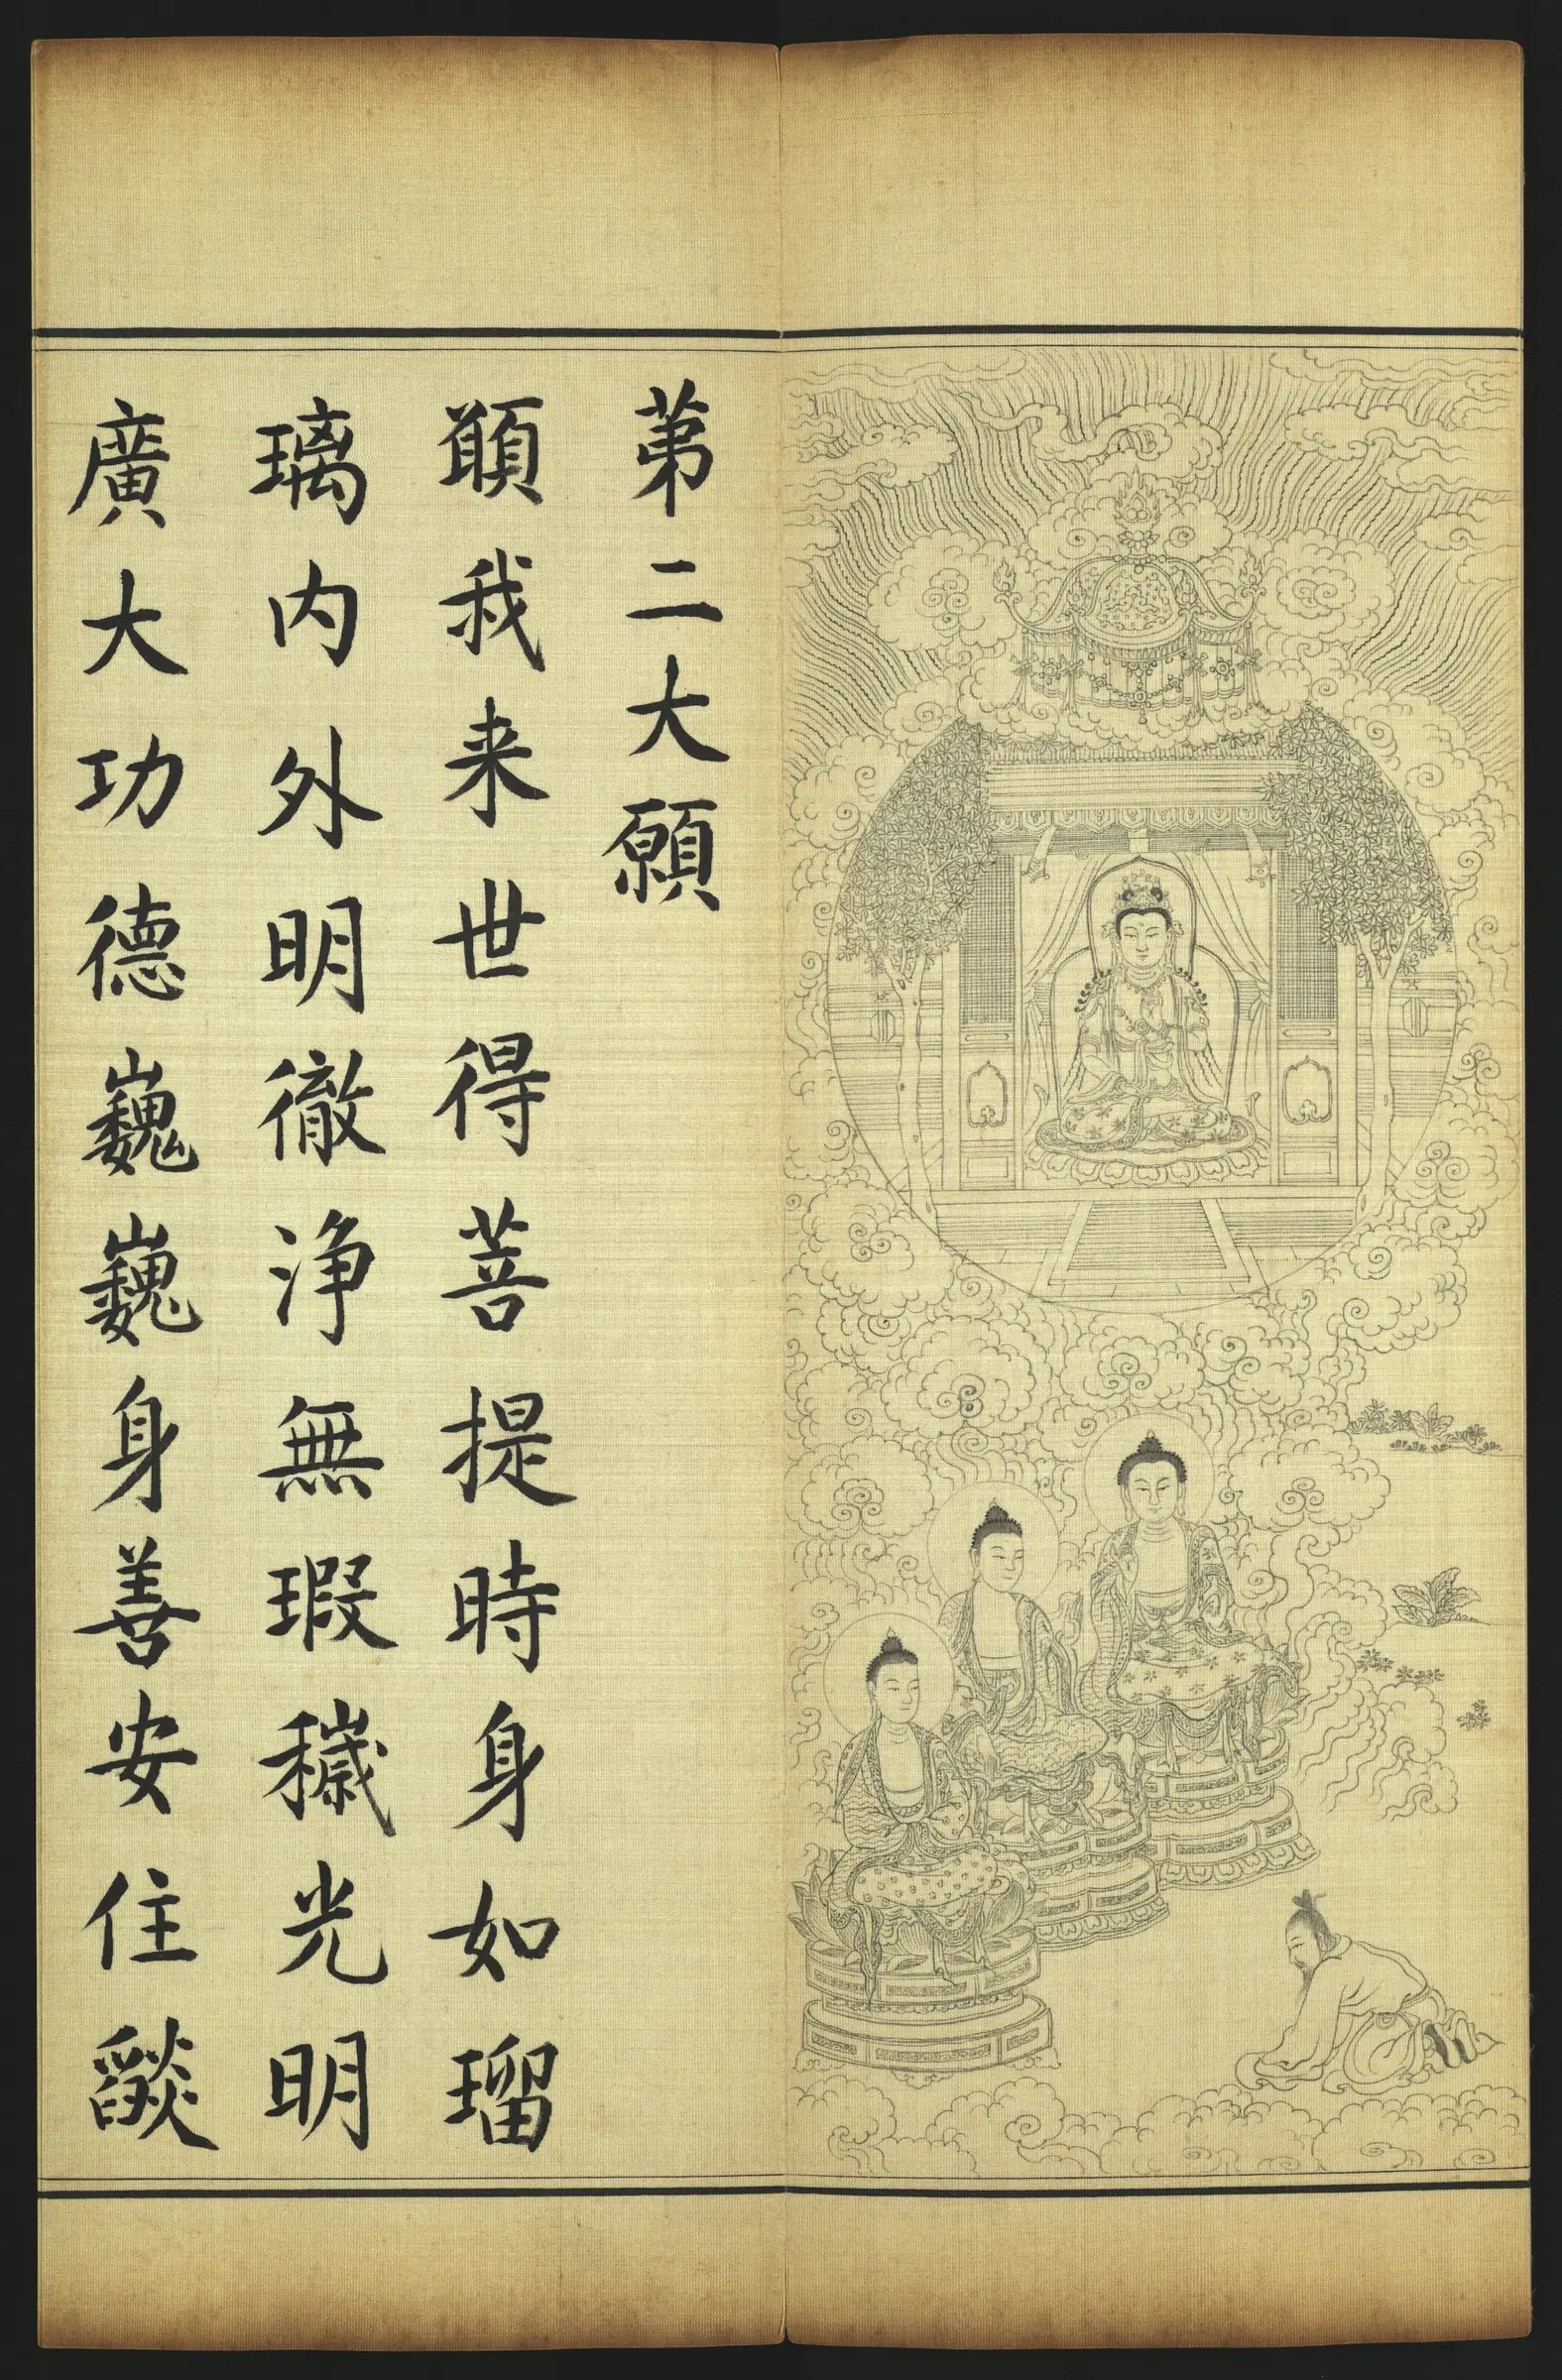 苐二大願
頥我来世得菩提時身如瑠
璃内外明徹浄無瑕穢光明
廣大功德巍巍身善安住燄